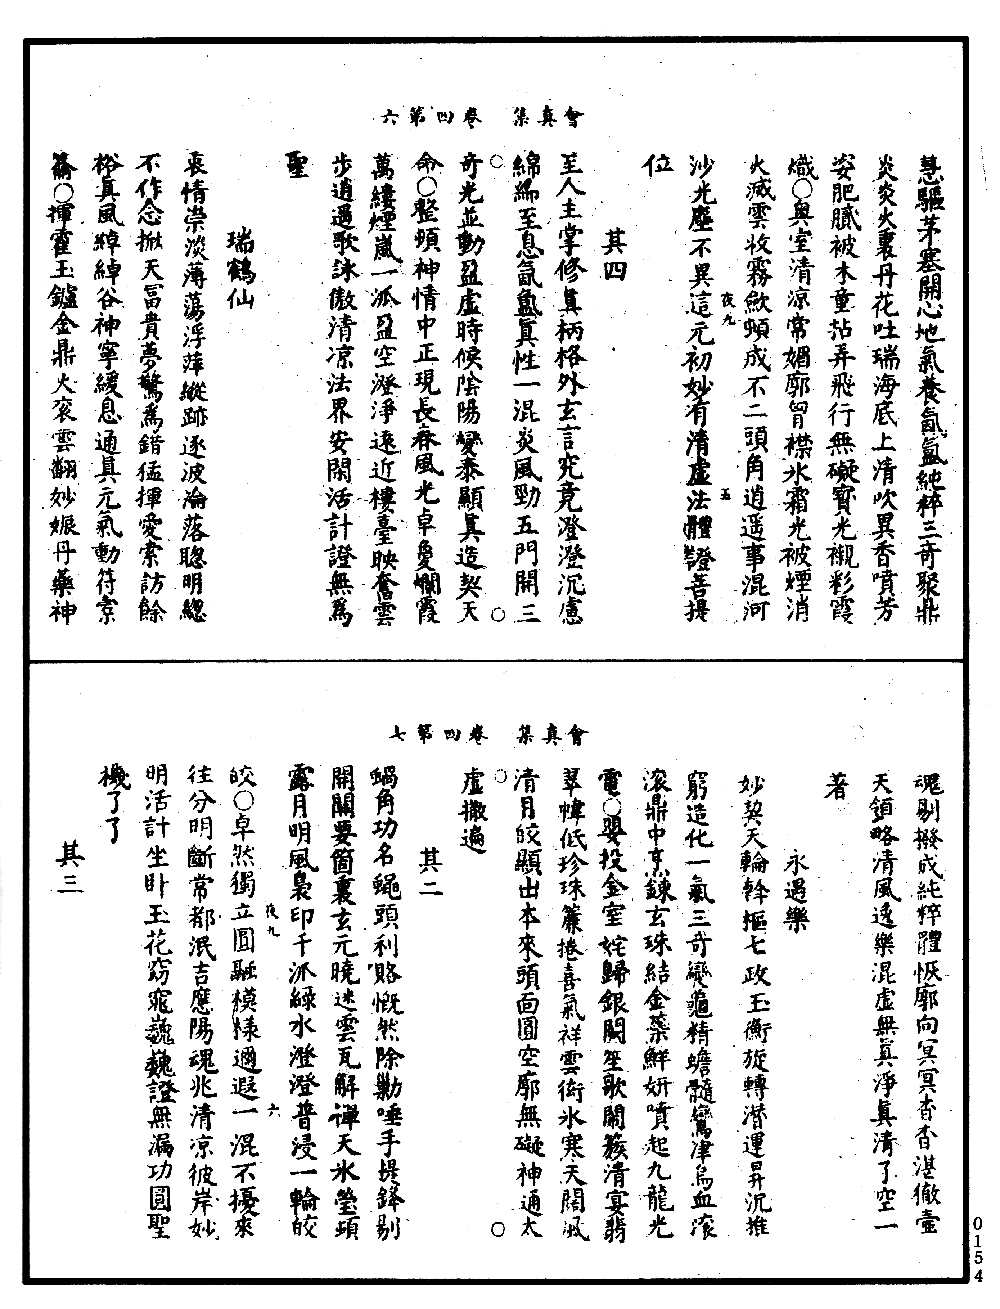 會真集　卷四第六
慧驅茅塞開心地氣養氤氳純粹三奇聚鼎
炎炎火裏丹花吐瑞海底上清吹異香噴芳
姿肥膩被木童拈弄飛行無礙寶光襯彩霞
熾○奥室清涼常媚廓曾襟氷霜光被煙消
火滅雲收霧歛頓成不二頭角逍遥事混河
沙光塵不異這元初妙有清虚法體證菩提
位
夜九
五
其四
至人主掌修真柄格外玄言究竟澄澄沉慮
綿綿至息氤氳真性一混炎風勁五門開三
奇光並動盈虚時候陰陽變泰顯真造契天
命○整頓神情中正現長春風光卓夐爛霞
萬縷煙嵐一派盈空澄淨遠近樓臺映奮雲
步逍遥歌詠傲清涼法界安閑活計證無爲
聖
瑞鶴仙
衷情崇淡薄蕩浮萍縱跡逐波淪落聰明緫
不作念掀天冨貴夢驚爲錯猛揮愛索訪餘
裕真風綽綽谷神寧緩息通真元氣動符索
籥○揮霍玉鑪金鼎火衮雲翻妙娠丹藥神
會真集　卷四第七
魂剔撥成純粹體恢廓向冥冥杳杳湛徹壷
天領略清風逸樂混虚無真淨真清了空一
著
永遇樂
妙契天輪斡摳七政玉衡旋轉潜運昇沉推
窮造化一氣三奇變龜精蟾髓鸞津烏血滚
滚鼎中烹鍊玄珠結金蘂鮮妍噴起九龍光
電○嬰投金室姹歸銀闕笙歌閙簇清宴翡
翠幃低珍珠簾捲喜氣祥雲衒氷寒天闊風
清月皎顯出本來頭面圓空廓無礙神通太
虚撒遍
其二
蝸角功名蠅頭利賂慨然除勦唾手提鋒剔
開關要箇裏玄元曉迷雲瓦解禪天氷瑩頭
露月明風裊印千派緑水澄澄普浸一輪皎
皎○卓然獨立圓融模樣適遐一混不擾來
往分明斷常都泯吉應陽魂兆清凉彼岸妙
明活計坐卧玉花窈窕巍巍證無漏功圓聖
機了了
夜九
六
其三
0154